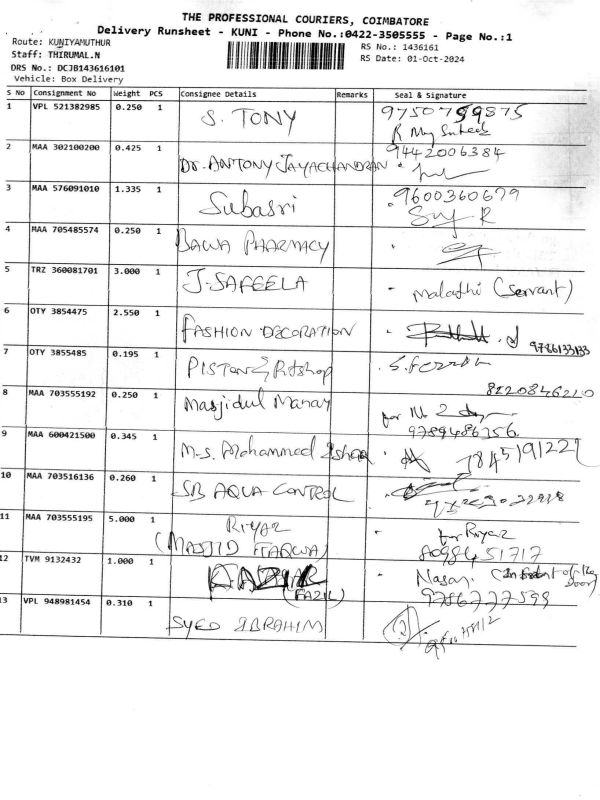 THE PROFESSIONAL COURIERS, COIMBATORE
Delivery Runsheet - KUNI - Phone No.:0422-3505555 - Page No.:1
Route: KUNIYAMUTHUR
RS No.: 1436161
Staff: THIRUMAL.N
RS Date: 01-Oct-2024
DRS No.: DCJB143616101
Vehicle: Box Delivery
S No Consignment No Weight PCS Consignee Details Remarks Seal & Signature
1 VPL 521382985 0.250 1 S. TONY 9750759875
2 MAA 302100200 0.425 1 DR. ANTONY JAYACHANDRAN 9442006384
3 MAA 576091010 1.335 1 Subasri 9600360679
4 MAA 705485574 0.250 1 BAWA PHARMACY
5 TRZ 360081701 3.000 1 J. SAFEELA Malathi (Servant)
6 OTY 3854475 2.550 1 FASHION DECORATION 9786133133
7 OTY 3855485 0.195 1 PISTON & Pitshop
8220846210
8 MAA 703555192 0.250 1 Masjidul Manar for
9789486756
9 MAA 600421500 0.345 1 M.S. Mohammed 7845191221
10 MAA 703516136 0.260 1 SB AQUA CONTROL
11 MAA 703555195 5.000 1 RIYAZ for Riyaz
(MASJID TAQWA) 8098451717
12 TVM 9132432 1.000 1 (FAZIL) (Infront of the door)
9786777599
13 VPL 948981454 0.310 1 SYED IBRAHIM